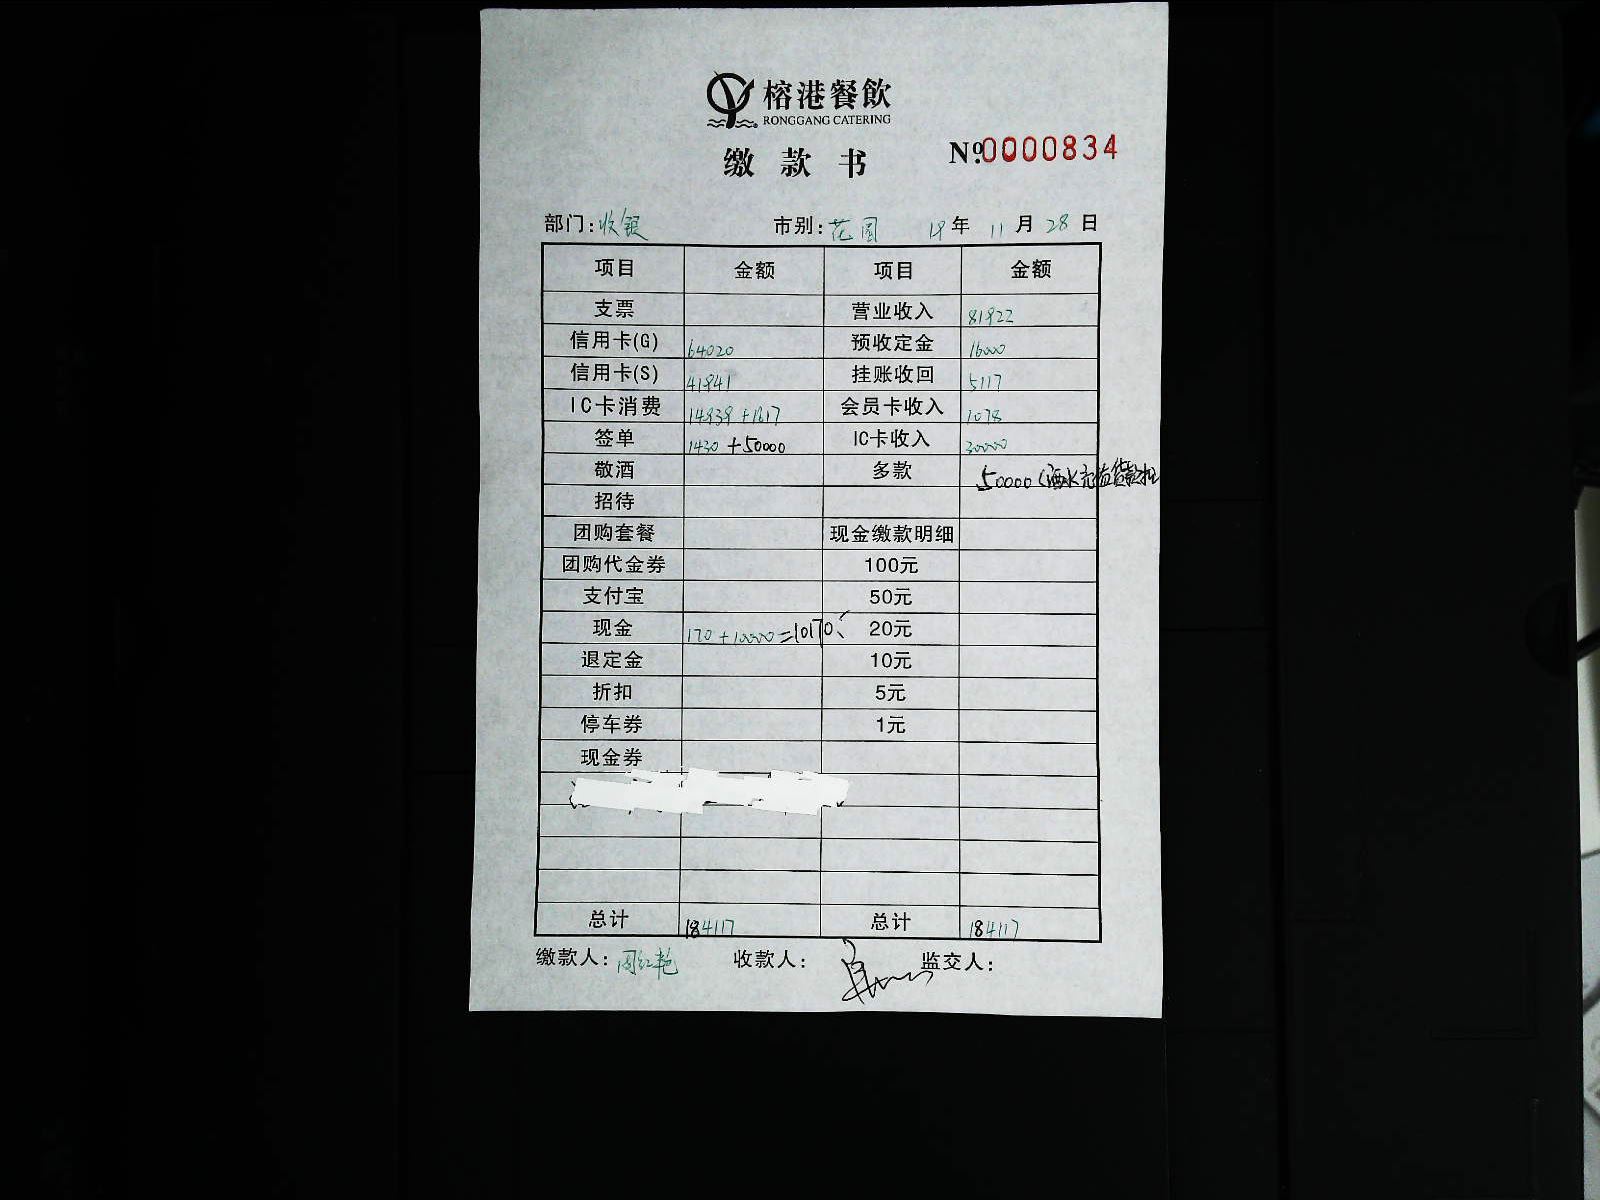 榕港餐飲
RONGGANG CATERING
缴款书 №0000834
部门:收银 市别:花园 18年11月28日
项目 金额 项目 金额
支票 营业收入 81922
信用卡(G) 64020 预收定金 16000
信用卡(S) 41841 挂账收回 5117
IC卡消费 14839+1817 会员卡收入 1078
签单 1430+50000 IC卡收入 30000
敬酒 多款 50000(酒水充值货款扣
招待
团购套餐 现金缴款明细
团购代金券 100元
支付宝 50元
现金 170+10000=10170 20元
退定金 10元
折扣 5元
停车券 1元
现金券
总计 184117 总计 184117
缴款人:周红艳 收款人: 监交人: